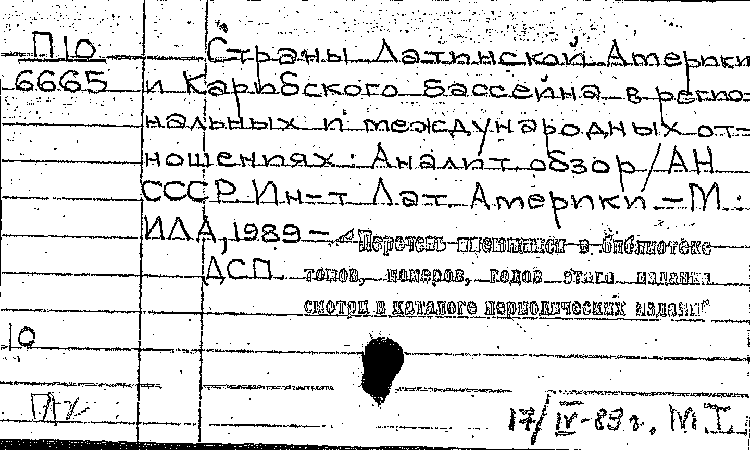 П10
6665
Страны Латинской Америки
и Карибского бассейна в регио-
нальных и международных от-
ношениях: Аналит. обзор / АН
СССР. Ин-т Лат. Америки – М.:
ИЛА, 1989 –
Перечень имеющихся в библиотеке
ДСП.
томов, номеров, годов этого издания
смотри в каталоге периодических изданий
10
17/IV-89 г. М I